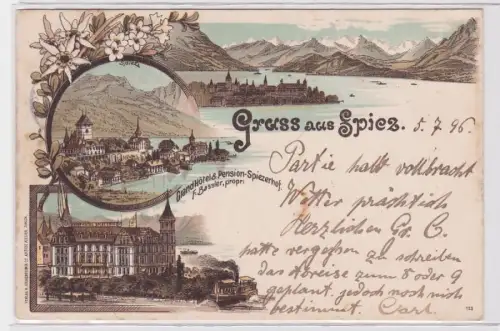 Gruss aus Spiez.
5.7.96.
Grand Hôtel & Pension-Spiezerhof.
propr.
Partie halb vollbracht
Wetter prächtich
Herzlichen Gr. C.
hatte vergessen zu schreiben
das Abreise zum 8 oder 9
geplant. jedoch noch nich
bestimmt. Carl.